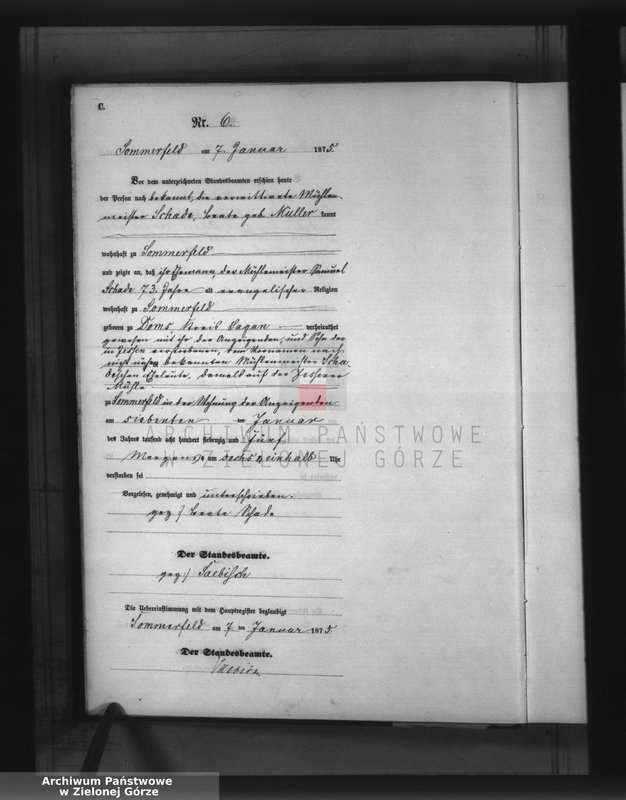 C.
Nr. 6.
Sommerfeld am 7. Januar 1875.
Vor dem unterzeichneten Standesbeamten erschien heute
der Person nach bekannt, die verwittwete Mühlen-
meister Schade, Beate geb. Müller kannt
wohnhaft zu Sommerfeld
und zeigte an, daß ihr Ehemann, der Mühlenmeister Samuel
Schade 73 Jahre alt evangelischer Religion
wohnhaft zu Sommerfeld
geboren zu Doms, Kreis Sagan verheirathet
gewesen mit ihr der Anzeigenden, und Sohn der
in verstorbenen, dem Vornamen nach
nicht näher bekannten Mühlenmeister Scha-
deschen Eheleute, damals auf der
Mühle
zu Sommerfeld in der Wohnung der Anzeigenden
am siebenten ten Januar
des Jahres tausend acht hundert siebenzig und fünf
Morgens um sechs einhalb Uhr
verstorben sei
Vorgelesen, genehmigt und unterschrieben.
gez:) Beate Schade
Der Standesbeamte.
gez:) Taebisch
Die Uebereinstimmung mit dem Hauptregister beglaubigt
Sommerfeld am 7. ten Januar 1875.
Der Standesbeamte.
ARCHIWUM PAŃSTWOWE
W ZIELONEJ GÓRZE
Archiwum Państwowe
w Zielonej Górze